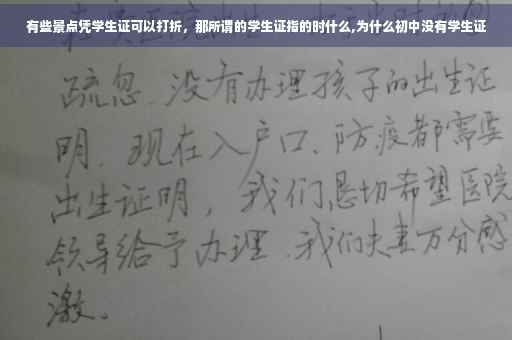 有些景点凭学生证可以打折，那所谓的学生证指的时什么,为什么初中没有学生证
疏忽、没有办理孩子的出生证
明、现在入户口、防疫都需要
出生证明，我们恳切希望医院
领导给予办理、我们夫妻万分感
激。